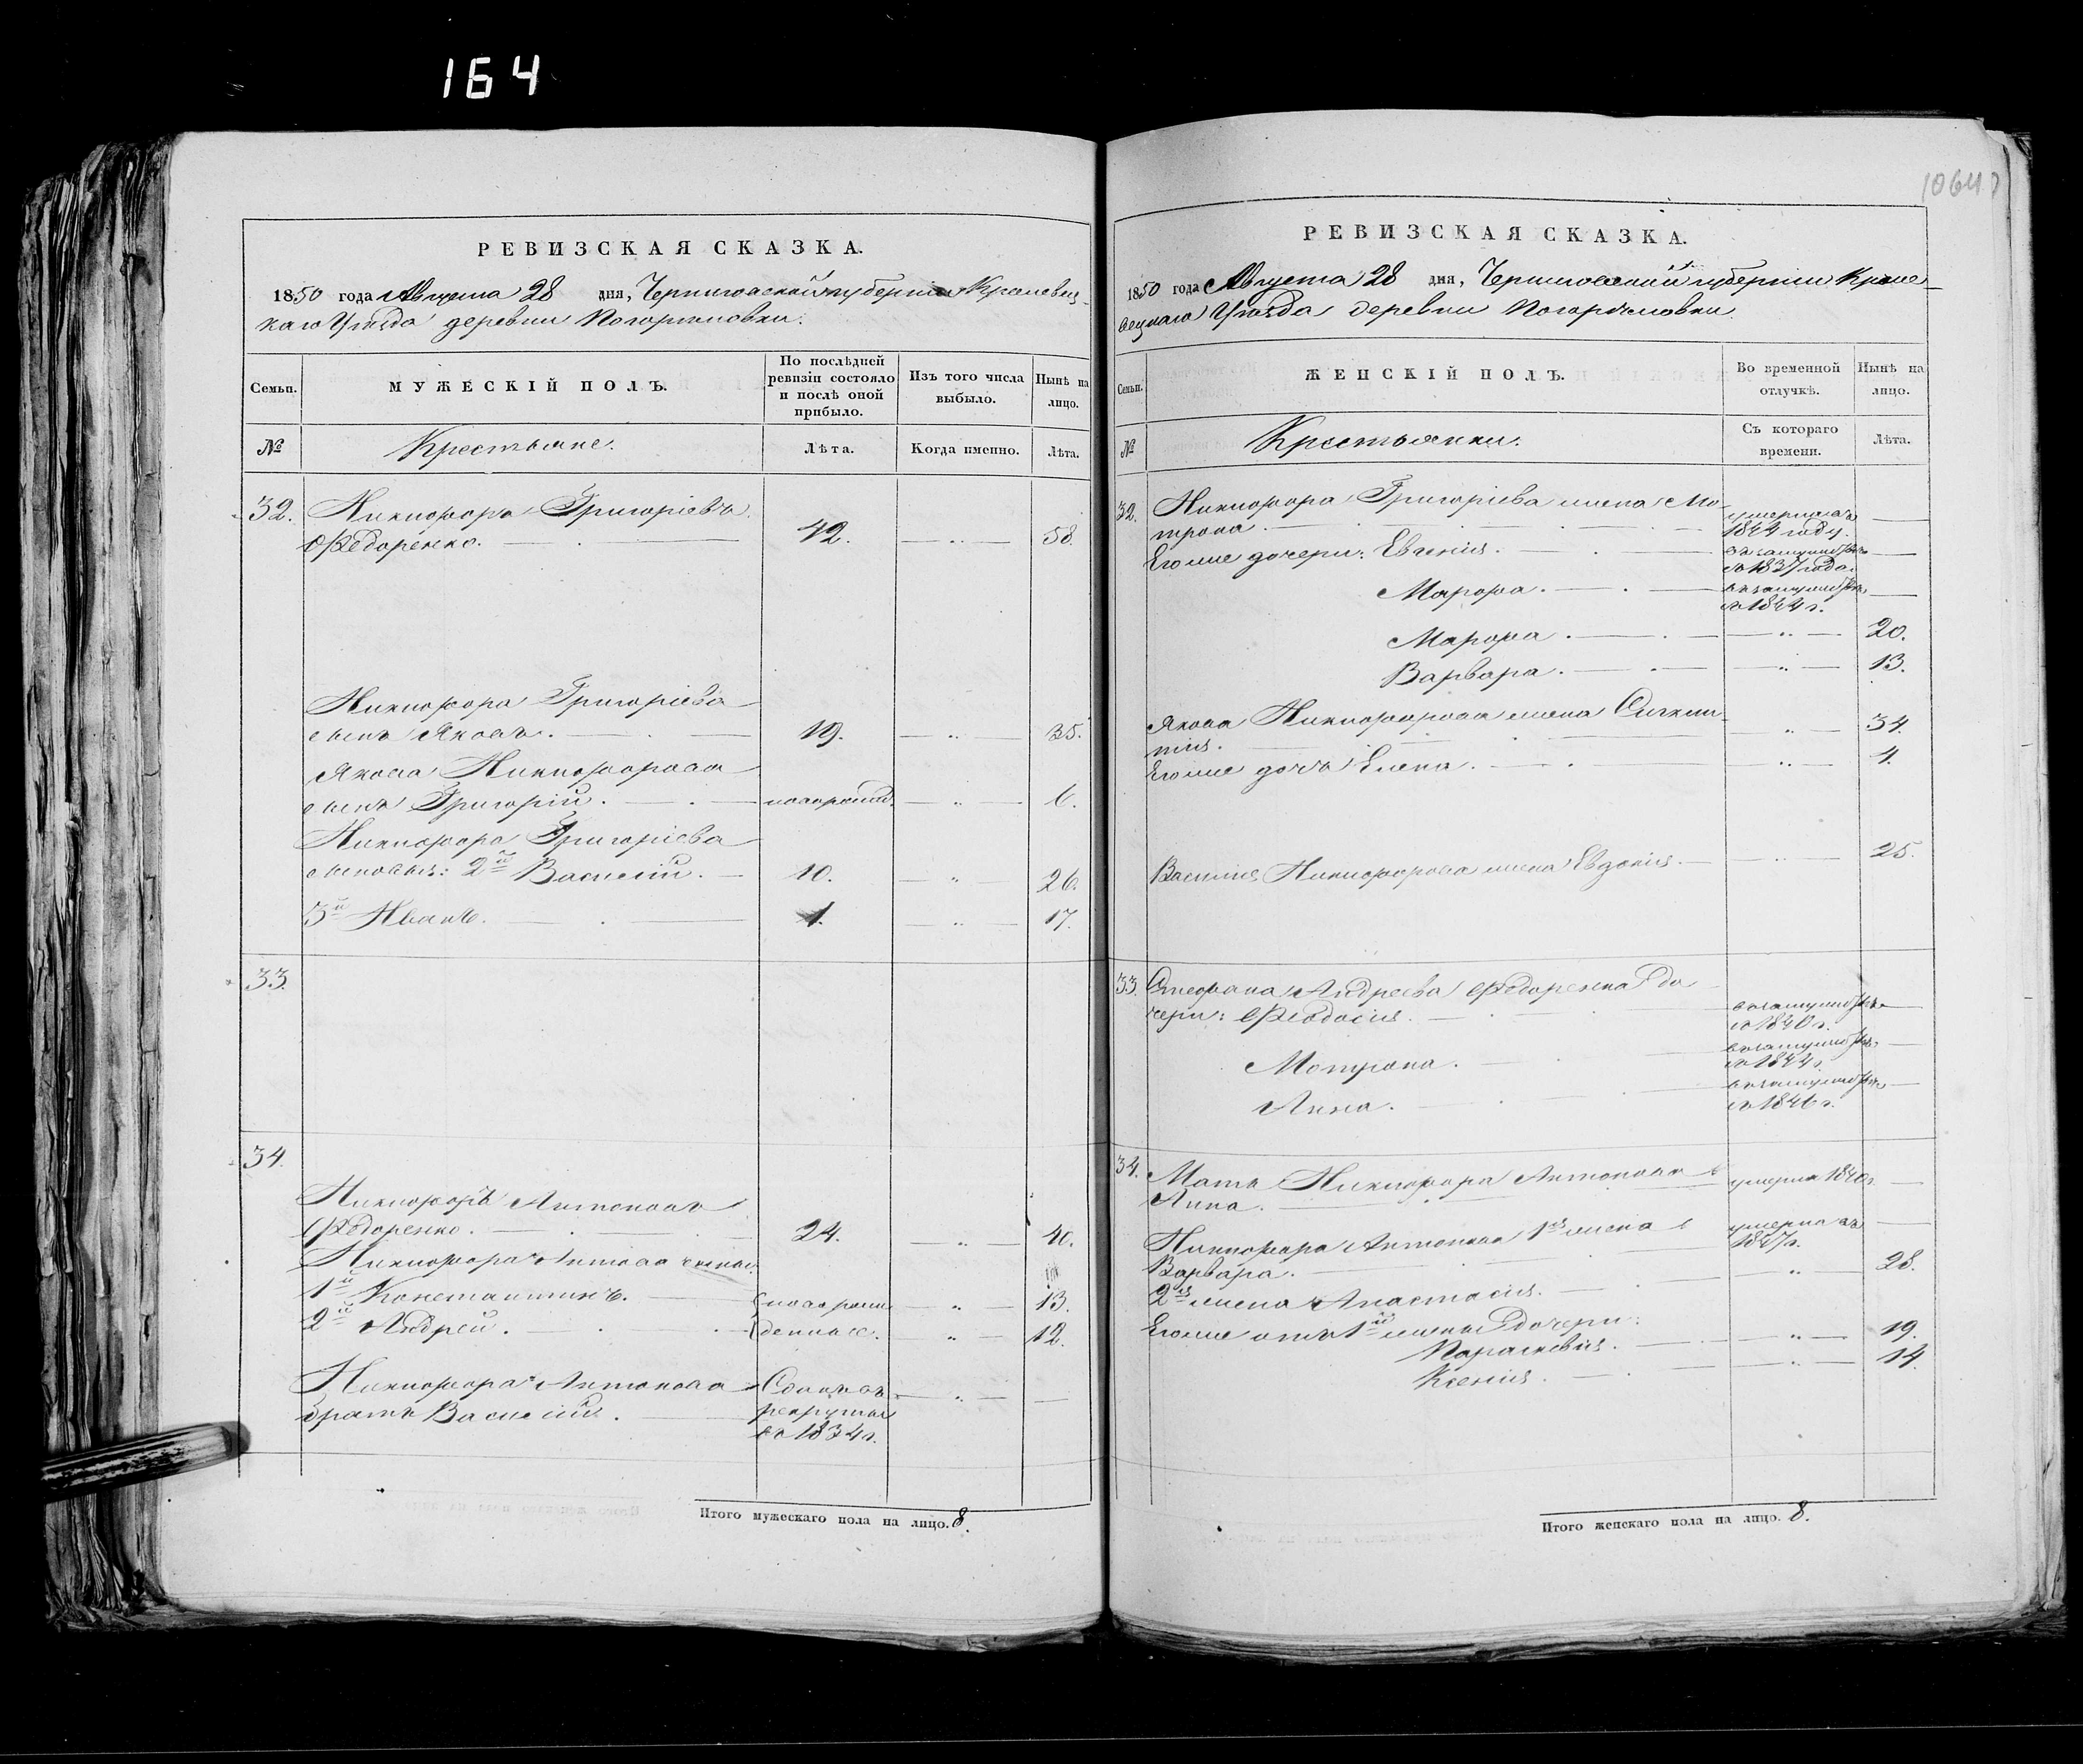 164
РЕВИЗСКАЯ СКАЗКА.
1850 года Августа 28 дня, Черниговской губерніи Кролевец-
каго Уѣзда деревни Погорѣловки.
Семьи.
МУЖЕСКІЙ ПОЛЪ.
По послѣдней
ревизіи состояло
и послѣ оной
прибыло.
Изъ того числа
выбыло.
Нынѣ на
лицо.
№
Крестьяне.
Лѣта.
Когда именно.
Лѣта.
32. Никифоръ Григорьевъ
Федоренко. 42. 58.
Никифора Григоріева
сынъ Яковъ. 19. 35.
Якова Никифорова
сынъ Григорій. новорожд. 6.
Никифора Григоріева
сыновья: 2й Василій. 10. 26.
3й Иванъ. 1. 17.
33.
34.
Никифоръ Антоновъ
Федоренко. 24. 40.
Никифора Антонова
1й Константинъ. новорож 13.
2й Андрей. денные. 12.
Никифора Антонова Сданъ въ
братъ Василій. рекруты
въ 1834 г.
Итого мужескаго пола на лицо. 8.
1064
РЕВИЗСКАЯ СКАЗКА.
1850 года Августа 28 дня, Черниговской губерніи Кроле-
вецкаго Уѣзда деревни Погорѣловки.
Семьи.
ЖЕНСКІЙ ПОЛЪ.
Во временной
отлучкѣ.
Нынѣ на
лицо.
№
Крестьянки.
Съ котораго
времени.
Лѣта.
32. Никифора Григоріева жена Мо-
трона. умерла въ
1844 году.
Его же дочери: Евгенія. въ замужествѣ
съ 1837 года.
Марфа. въ замужествѣ
съ 1844 г.
Марфа. 20.
Варвара. 13.
Якова Никифорова жена
34.
Его же дочь Елена. 4.
Василія Никифорова жена Евдокія. 25.
33. Стефана Андреева Федоренка до
чери: Феодосія. въ замужествѣ
съ 1840 г.
Мотрона. въ замужествѣ
съ 1844 г.
Анна. въ замужествѣ
съ 1846 г.
34. Мать Никифора Антонова
Анна. умерла 1840 г.
Никифора Антонова 1я жена
Варвара. умерла въ
1847 г.
2я жена Анастасія. 28.
Его же отъ 1й жены дочери:
Параскевія. 19.
Ксенія. 14.
Итого женскаго пола на лицо. 8.